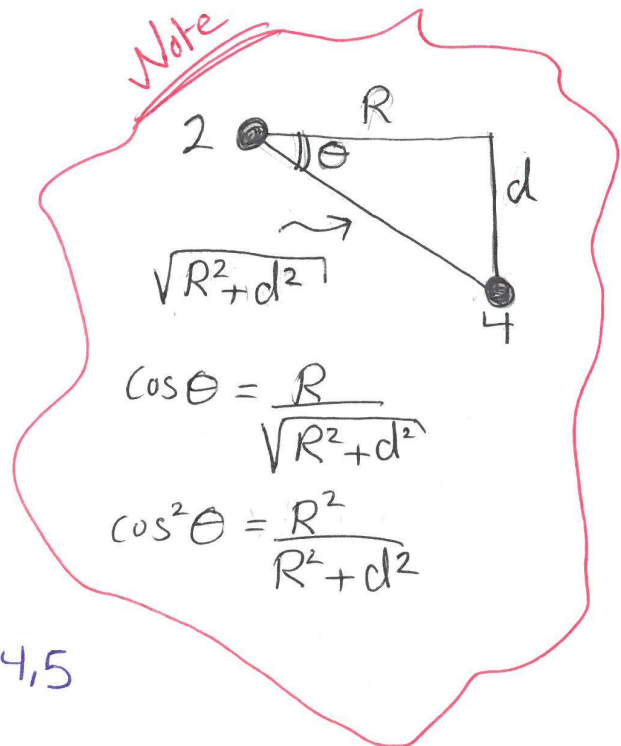 Note
R
2
θ
d
√R²+d²
4
cosθ = R / √R²+d²
cos²θ = R² / R²+d²
4,5